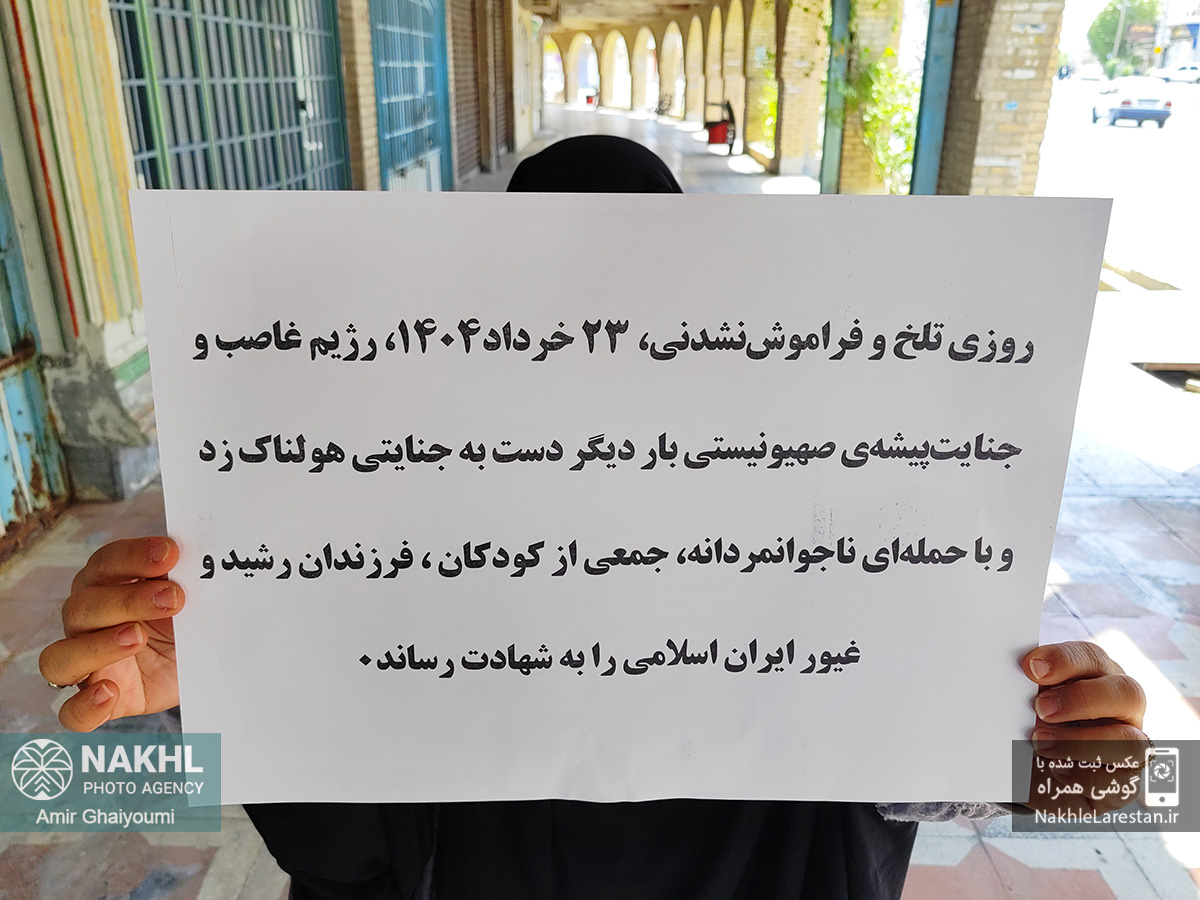 روزی تلخ و فراموش‌نشدنی، ۲۳ خرداد۱۴۰۴، رژیم غاصب و
جنایت‌پیشه‌ی صهیونیستی بار دیگر دست به جنایتی هولناک زد
و با حمله‌ای ناجوانمردانه، جمعی از کودکان ، فرزندان رشید و
غیور ایران اسلامی را به شهادت رساند۰
NAKHL
PHOTO AGENCY
Amir Ghaiyoumi
عکس ثبت شده با
گوشی همراه
NakhleLarestan.ir